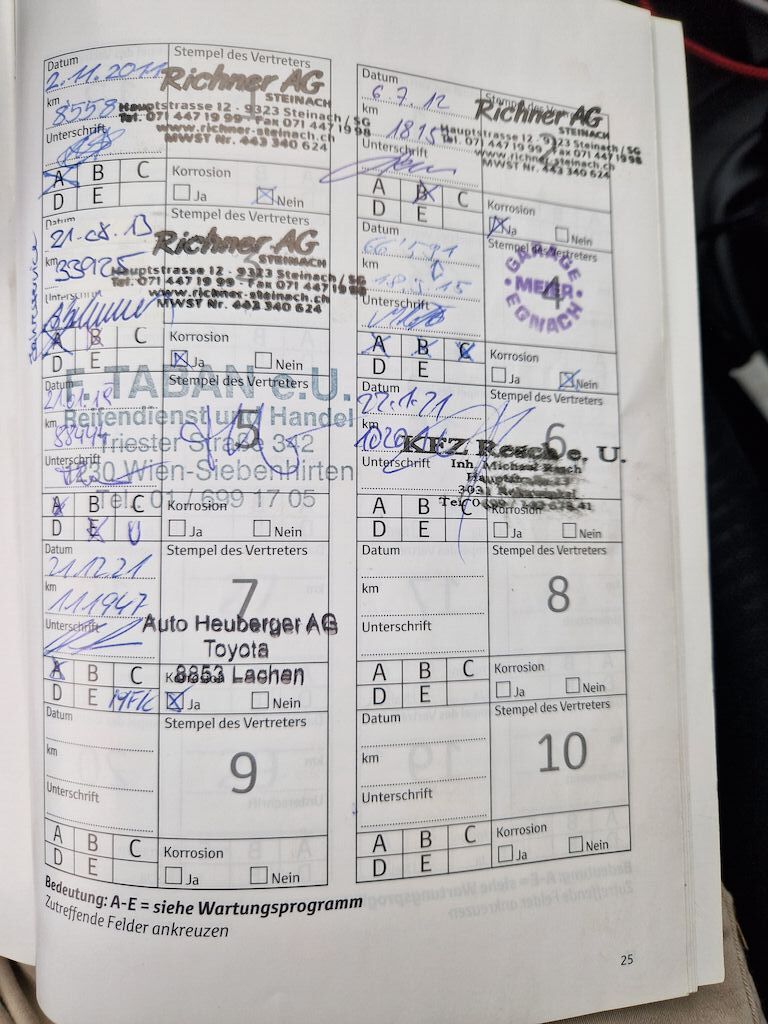 Datum
2.11.2011
km
8'558
Unterschrift
Stempel des Vertreters
Richner AG
STEINACH
Hauptstrasse 12 - 9323 Steinach / SG
Tel. 071 447 19 99 - Fax 071 447 19 98
www.richner-steinach.ch
MWST Nr. 443 340 624
A B C
D E
Korrosion
Ja Nein
Datum
6 7. 12
km
Unterschrift
Stempel des Vertreters
Richner AG
STEINACH
Hauptstrasse 12 - 9323 Steinach / SG
Tel. 071 447 19 99 - Fax 071 447 19 98
www.richner-steinach.ch
MWST Nr. 443 340 624
A B C
D E
Korrosion
Ja Nein
Datum
21-08.13
km
33925
Unterschrift
Stempel des Vertreters
Richner AG
STEINACH
Hauptstrasse 12 - 9323 Steinach / SG
Tel. 071 447 19 99 - Fax 071 447 19 98
www.richner-steinach.ch
MWST Nr. 443 340 624
A B C
D E
Korrosion
Ja Nein
km
Unterschrift
Stempel des Vertreters
4
GARAGE
MEIER
EGNACH
A B C
D E
Korrosion
Ja Nein
Datum
km
88444
Unterschrift
Stempel des Vertreters
5
F. TABAN e.U.
Reifendienst und Handel
Triester Straße 342
1230 Wien-Siebenhirten
Tel. 01 / 699 17 05
A B C
D E
Korrosion
Ja Nein
Datum
22.1.21
km
Unterschrift
Stempel des Vertreters
6
KFZ Resch e. U.
Inh. Michael Resch
A B C
D E
Korrosion
Ja Nein
Datum
21.12.21
km
111947
Unterschrift
Stempel des Vertreters
7
Auto Heuberger AG
Toyota
8853 Lachen
A B C
D E MFK
Korrosion
Ja Nein
Datum
km
Unterschrift
Stempel des Vertreters
8
A B C
D E
Korrosion
Ja Nein
Datum
km
Unterschrift
Stempel des Vertreters
9
A B C
D E
Korrosion
Ja Nein
Datum
km
Unterschrift
Stempel des Vertreters
10
A B C
D E
Korrosion
Ja Nein
Bedeutung: A-E = siehe Wartungsprogramm
Zutreffende Felder ankreuzen
25